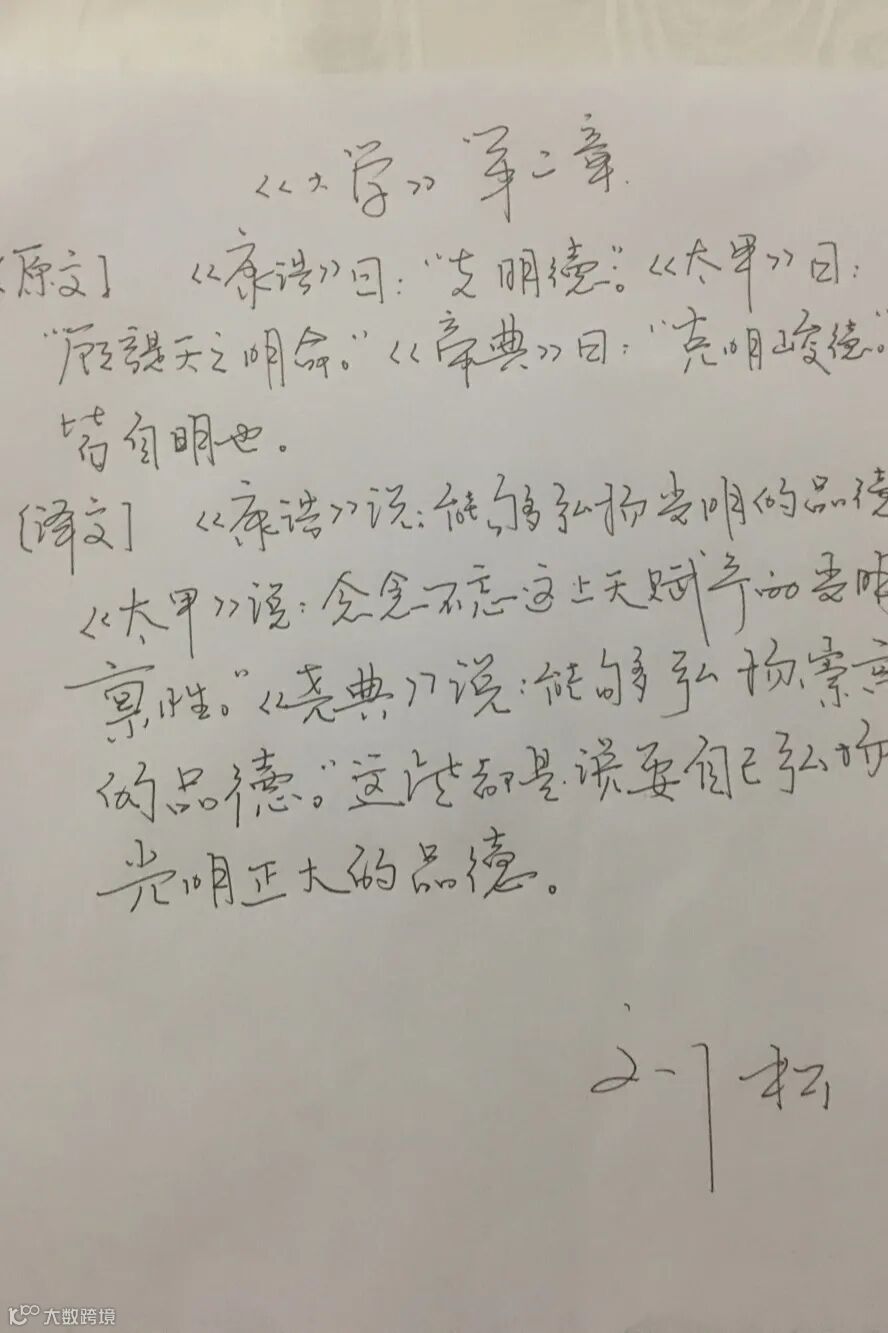 《大学》第二章.
[原文] 《康诰》曰：“克明德”。《太甲》曰：
“顾諟天之明命。”《帝典》曰：“克明峻德。”
皆自明也。
[译文] 《康诰》说：能够弘扬光明的品德
《太甲》说：念念不忘这上天赋予的
禀性。”《尧典》说：能够弘扬崇高
的品德。”这些都是说要自己弘扬
光明正大的品德。
刘松
大数跨境